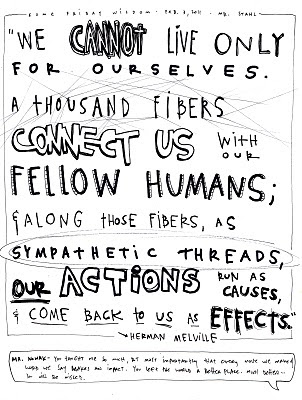 SOME FRIDAY WISDOM - FEB. 3, 2011 - MR. STAHL
"WE CANNOT LIVE ONLY
FOR OURSELVES.
A THOUSAND FIBERS
CONNECT US WITH
OUR
FELLOW HUMANS;
& ALONG THOSE FIBERS, AS
SYMPATHETIC THREADS,
OUR ACTIONS RUN AS
CAUSES,
& COME BACK TO US AS EFFECTS."
HERMAN MELVILLE
YOU TAUGHT ME SO MUCH, BUT MOST IMPORTANTLY THAT EVERY MOVE WE MAKE &
WORD WE SAY MAKES AN IMPACT. YOU LEFT THE WORLD A BETTER PLACE.